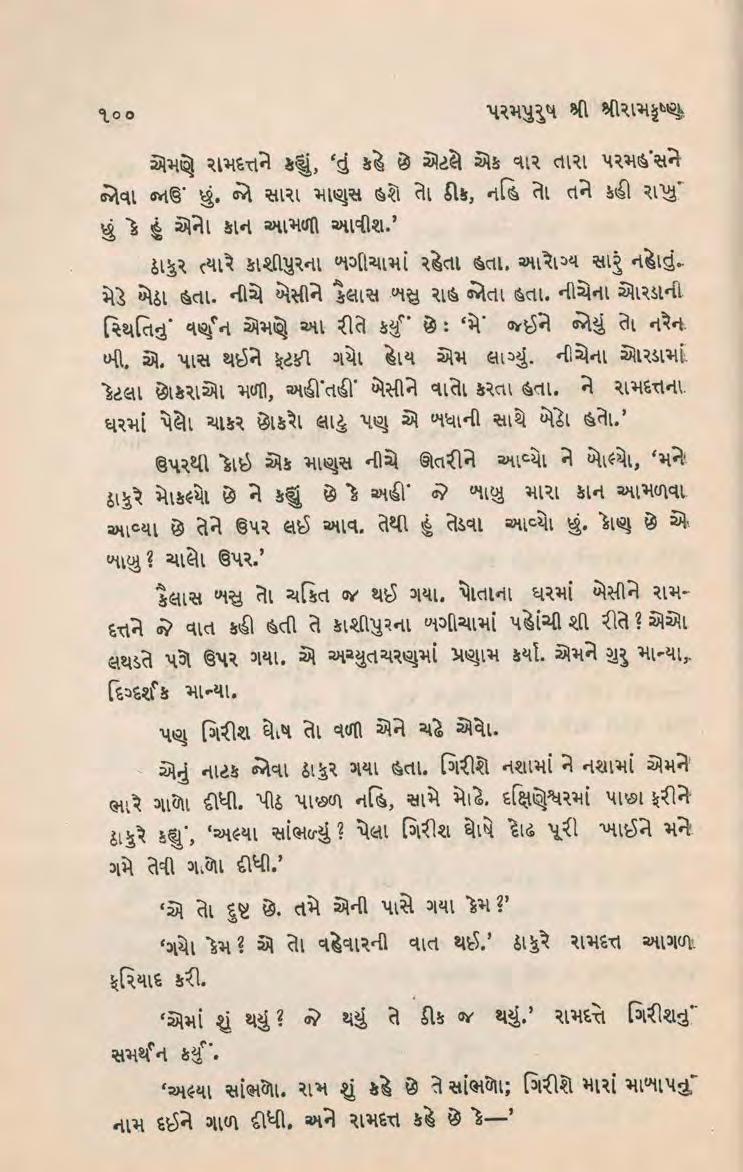 ૧૦૦ પરમપુરુષ શ્રી શ્રીરામકૃષ્ણ
એમણે રામદત્તને કહ્યું, ‘તું કહે છે એટલે એક વાર તારા પરમહંસને
જોવા જાઉં છું. જો સારા માણસ હશે તો ઠીક, નહિ તો તને કહી રાખું
છું કે હું એનો કાન આમળી આવીશ.’
ઠાકુર ત્યારે કાશીપુરના બગીચામાં રહેતા હતા. આરોગ્ય સારું નહોતું.
મેડે બેઠા હતા. નીચે બેસીને કૈલાસ બસુ રાહ જોતા હતા. નીચેના ઓરડાની
સ્થિતિનું વર્ણન એમણે આ રીતે કર્યું છે : ‘મેં જઈને જોયું તો નરેન
બી. એ. પાસ થઈને ફટકી ગયો હોય એમ લાગ્યું. નીચેના ઓરડામાં
કેટલા છોકરાઓ મળી, અહીંતહીં બેસીને વાતો કરતા હતા. ને રામદત્તના
ઘરમાં પેલો ચાકર છોકરો લાટુ પણ એ બધાની સાથે બેઠો હતો.’
ઉપરથી કોઇ એક માણસ નીચે ઊતરીને આવ્યો ને બોલ્યો, ‘મને
ઠાકુરે મોકલ્યો છે ને કહ્યું છે કે અહીં જે બાબુ મારા કાન આમળવા
આવ્યા છે તેને ઉપર લઈ આવ. તેથી હું તેડવા આવ્યો છું. કોણ છે એ
બાબુ ? ચાલો ઉપર.’
કૈલાસ બસુ તો ચકિત જ થઈ ગયા. પોતાના ઘરમાં બેસીને રામ-
દત્તને જે વાત કહી હતી તે કાશીપુરના બગીચામાં પહોંચી શી રીતે ? એઓ
લથડતે પગે ઉપર ગયા. એ અચ્યુતચરણમાં પ્રણામ કર્યા. એમને ગુરુ માન્યા,
દિગ્દર્શક માન્યા.
પણ ગિરીશ ઘોષ તો વળી એને ચઢે એવો.
એનું નાટક જોવા ઠાકુર ગયા હતા. ગિરીશે નશામાં ને નશામાં એમને
ભારે ગાળો દીધી. પીઠ પાછળ નહિ, સામે મોઢે. દક્ષિણેશ્વરમાં પાછા ફરીને
ઠાકુરે કહ્યું, ‘અલ્યા સાંભળ્યું ? પેલા ગિરીશ ઘોષે દોઢ પૂરી ખાઈને મને
ગમે તેવી ગાળો દીધી.’
‘એ તો દુષ્ટ છે. તમે એની પાસે ગયા કેમ ?’
‘ગયો કેમ ? એ તો વહેવારની વાત થઈ.’ ઠાકુરે રામદત્ત આગળ
ફરિયાદ કરી.
‘એમાં શું થયું ? જે થયું તે ઠીક જ થયું.’ રામદત્તે ગિરીશનું
સમર્થન કર્યું.
‘અલ્યા સાંભળો. રામ શું કહે છે તે સાંભળો; ગિરીશે મારાં માબાપનું
નામ દઈને ગાળ દીધી. અને રામદત્ત કહે છે કે—’